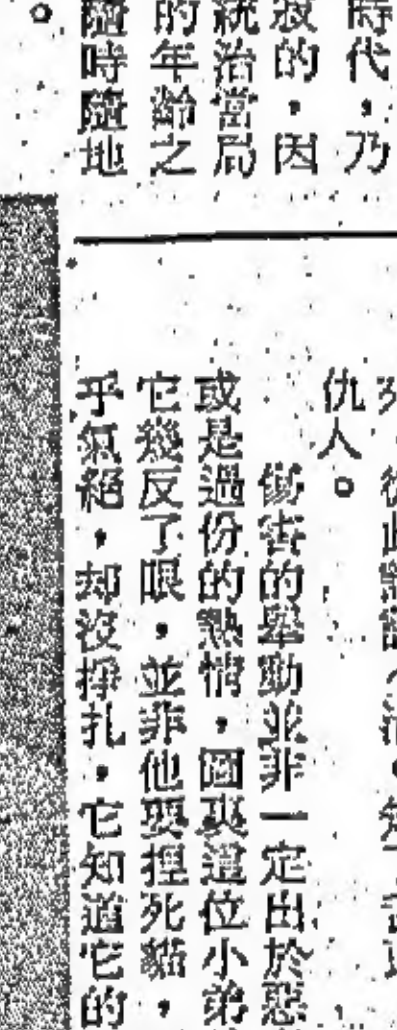 時代，乃
寂的，因
統治當局
的年齡之
隨時隨地
。
仇人。
傷害的舉動並非一定出於惡
或是過份的熱情，圖裏這位小弟
它幾反了眼，並非他要捏死貓，
乎氣絕，却沒掙扎，它知道它的